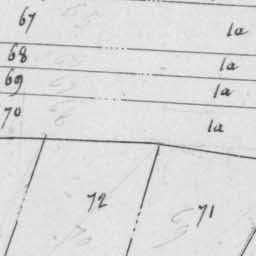 67 1a
68 1a
69 1a
70 1a
72 71